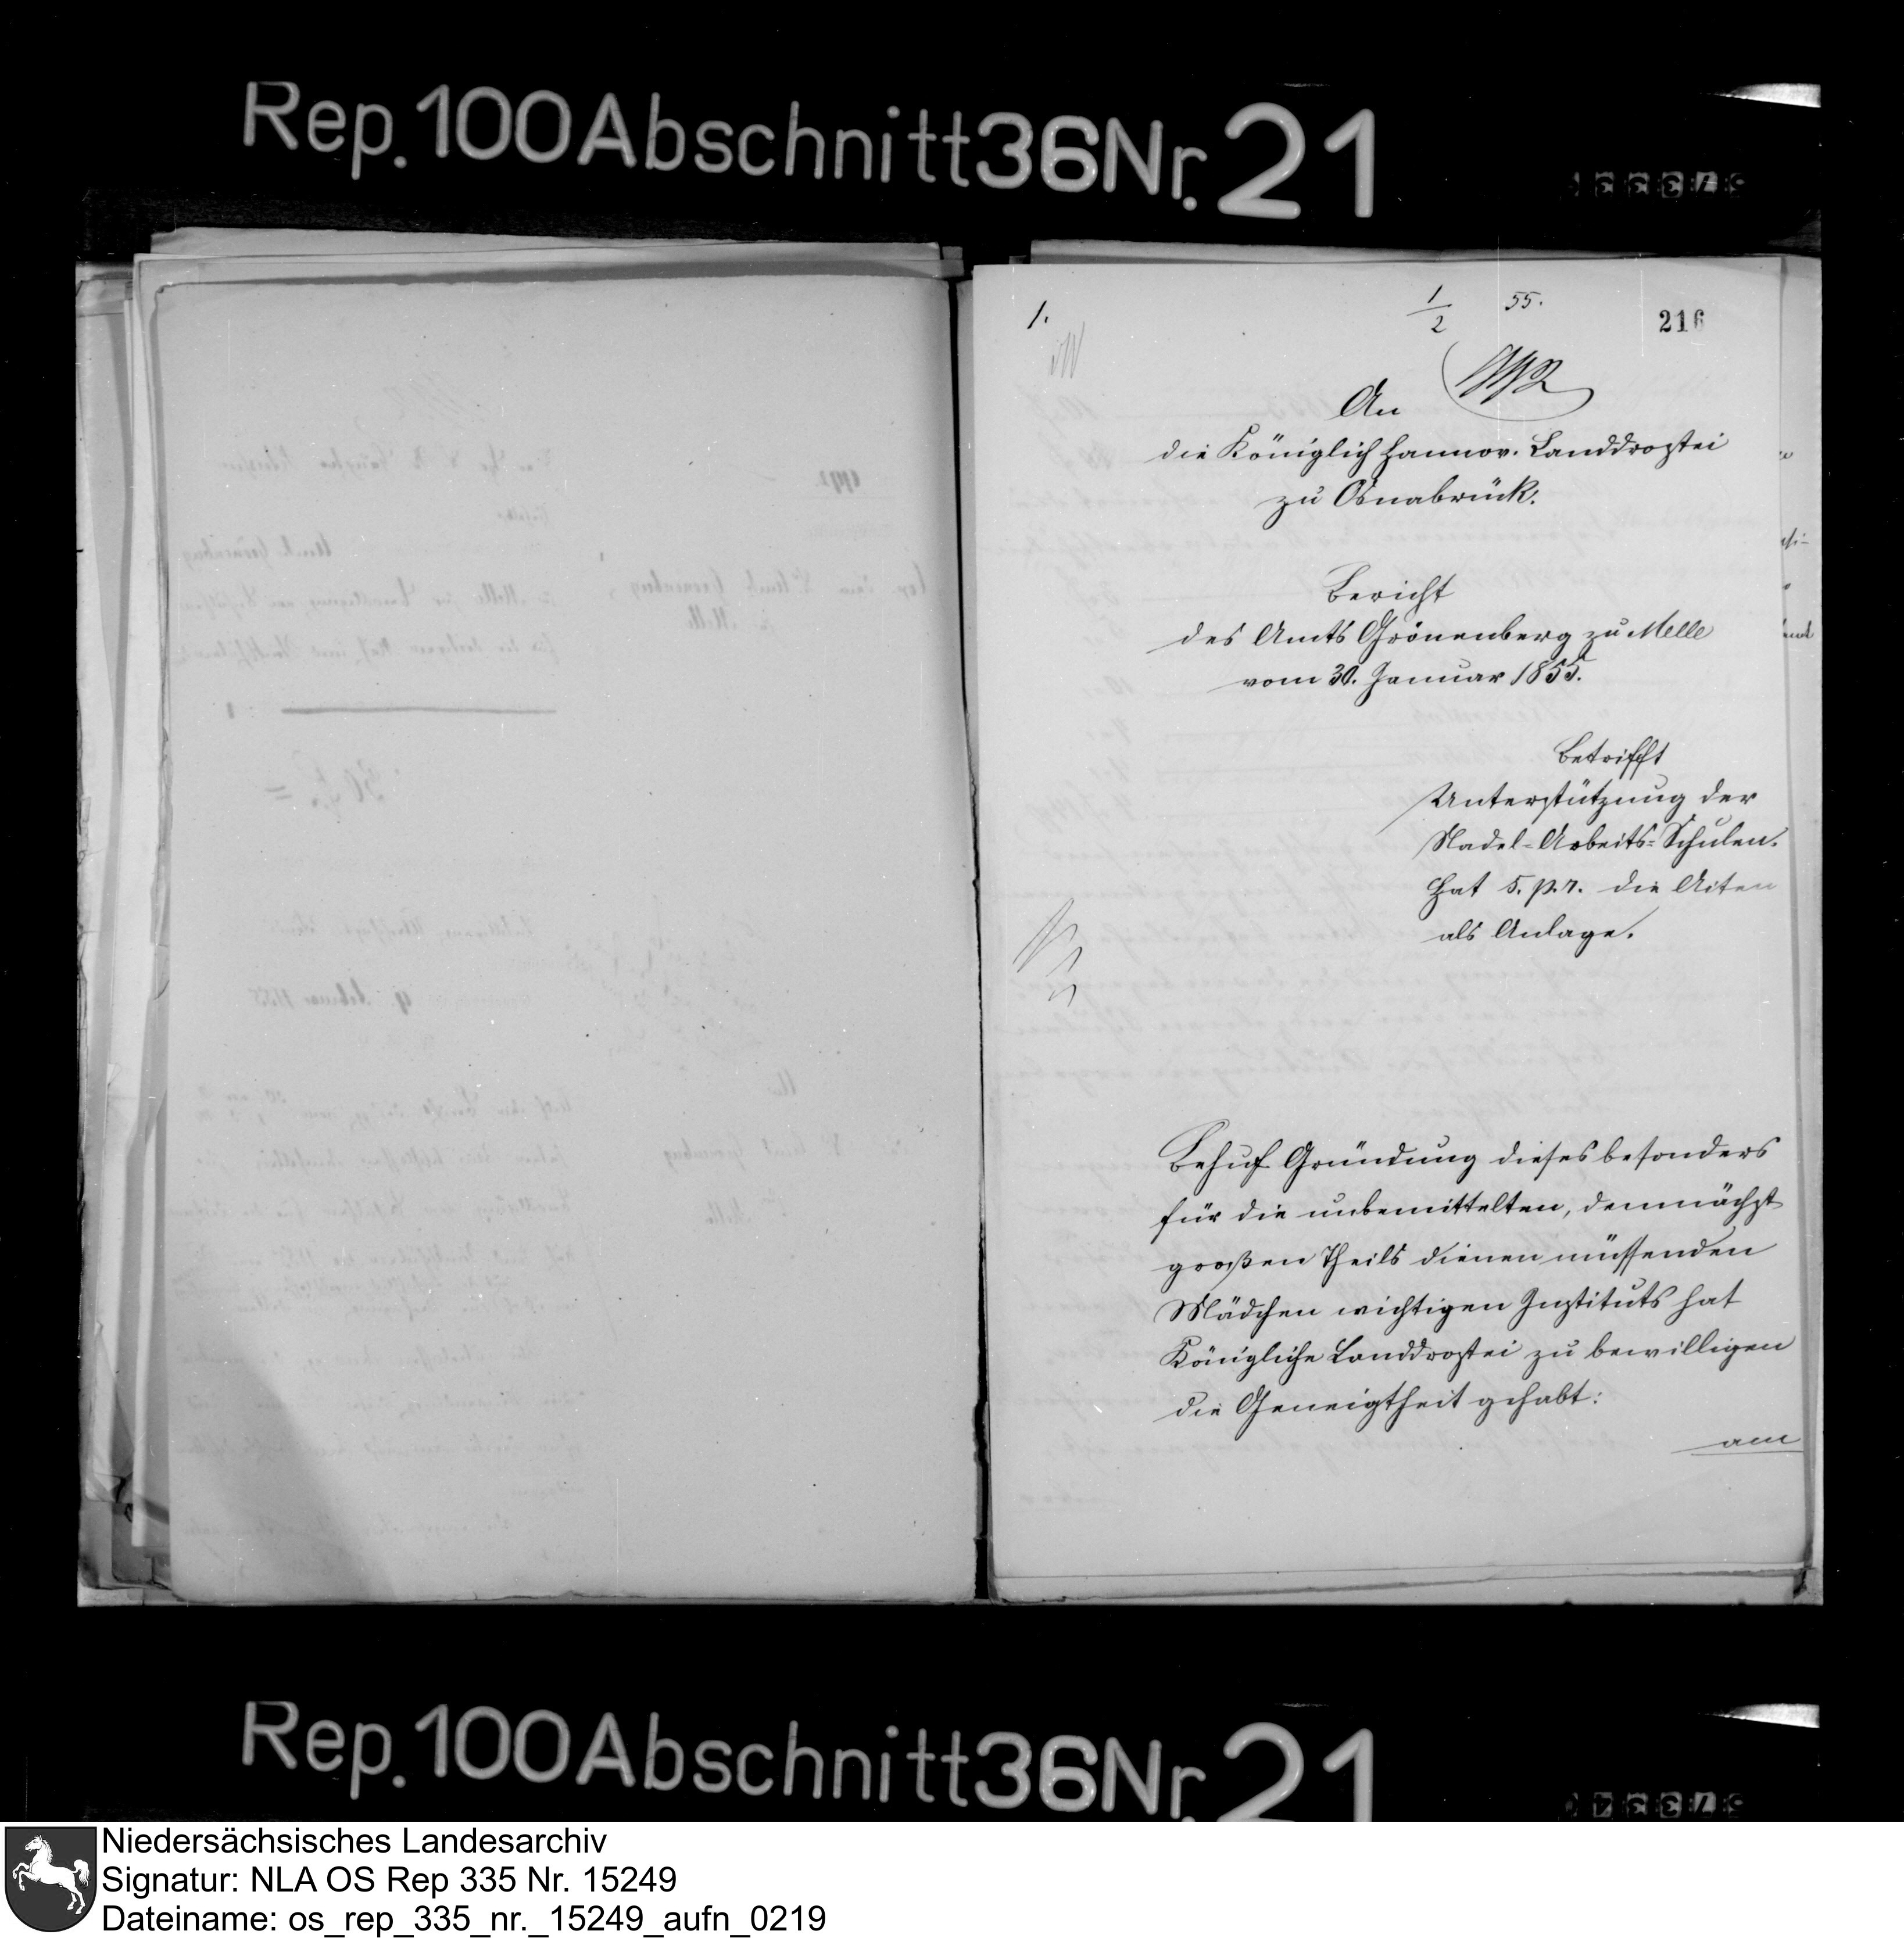 Rep. 100 Abschnitt 36 Nr. 21
1.
1/2 55.
216
An
die Königlich Hannov. Landdrostei
zu Osnabrück.
Bericht
des Amts Grönenberg zu Melle
vom 30. Januar 1855.
Betrifft
Unterstützung der
Nadel-Arbeits-Schulen.
Hat 5. p. r. die Acten
als Anlage.
Behuf Gründung dieses besonders
für die unbemittelten, demnächst
großen Theils dienen müssenden
Mädchen wichtigen Instituts hat
Königliche Landdrostei zu bewilligen
die Geneigtheit gehabt:
am
Rep. 100 Abschnitt 36 Nr. 21
Niedersächsisches Landesarchiv
Signatur: NLA OS Rep 335 Nr. 15249
Dateiname: os_rep_335_nr._15249_aufn_0219